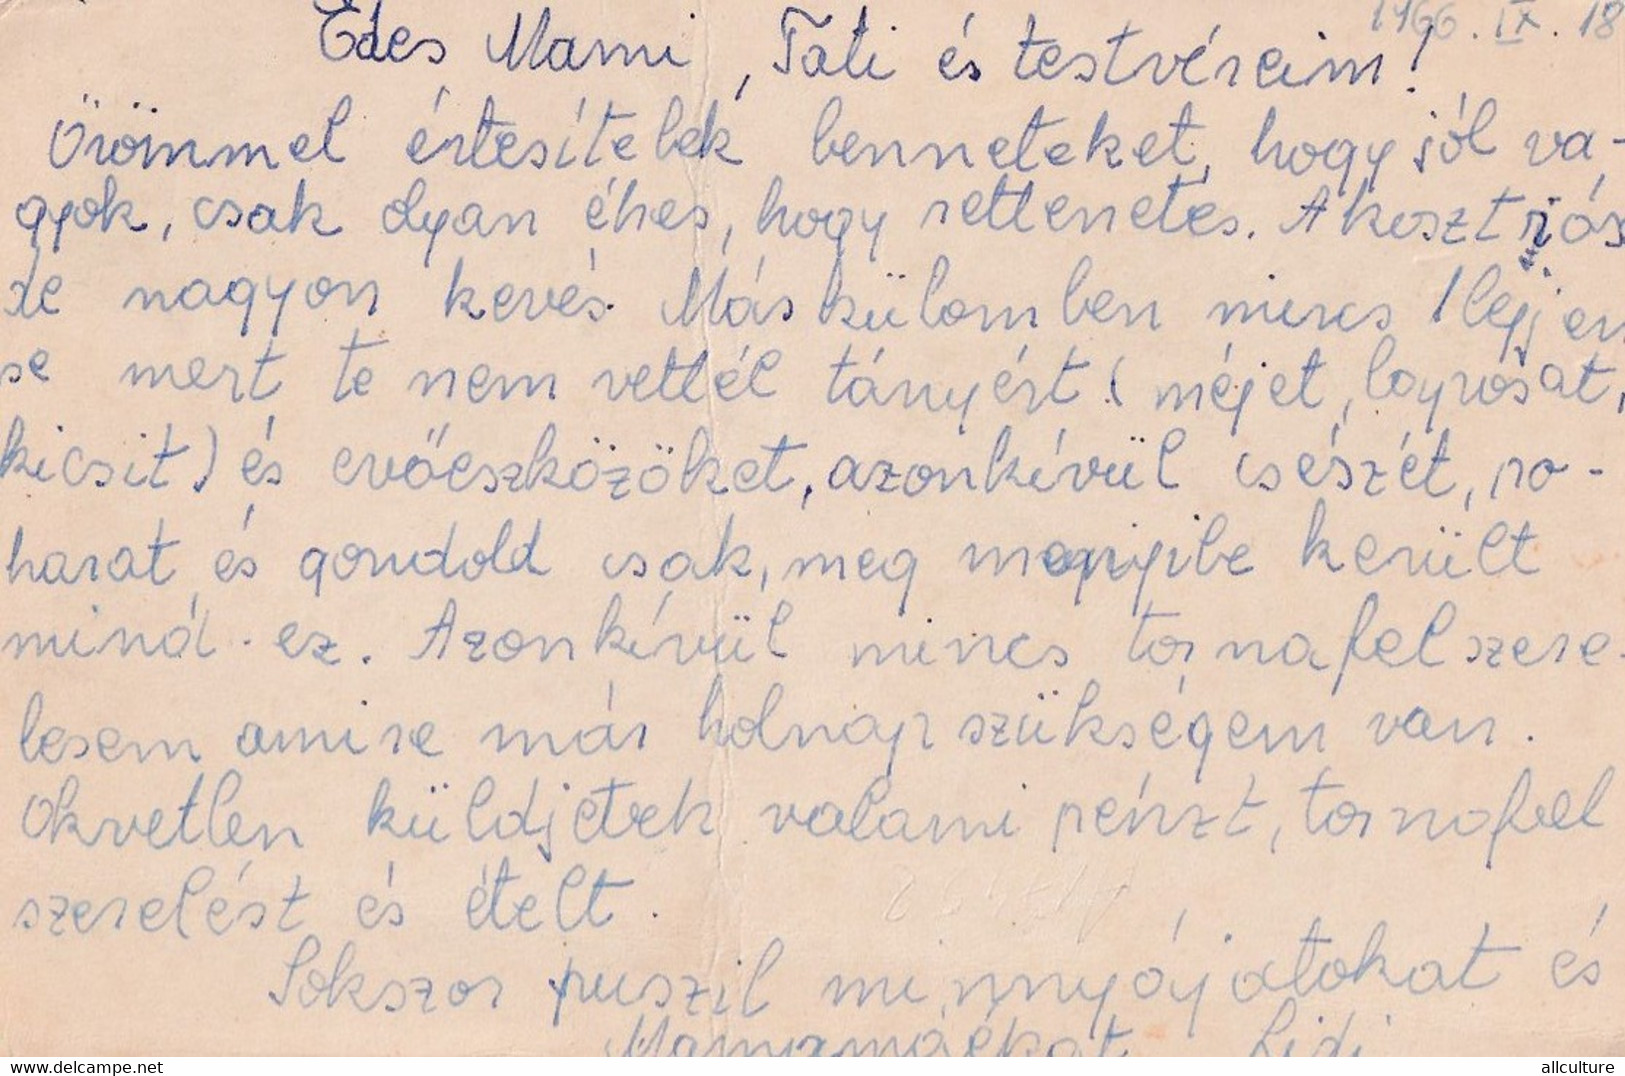 1966. IX. 18
Édes Mami, Tati és testvéreim!
Örömmel értesítelek benneteket, hogy jól va-
gyok, csak olyan éhes, hogy rettenetes. A koszt
de nagyon kevés. Máskülömben nincs
se mert te nem vettél tányért (méjet, lapossat,
kicsit) és evőeszközöket, azonkívül csészét, po-
harat és gondold csak, meg mennyibe került
mind ez. Azonkívül nincs tornafelszere-
lesem amire már holnap szükségem van.
Okvetlen küldjetek valami pénzt, tornafel
szerelést és ételt.
Sokszor puszil minnyájatokat és
Lidi
www.delcampe.net
allculture